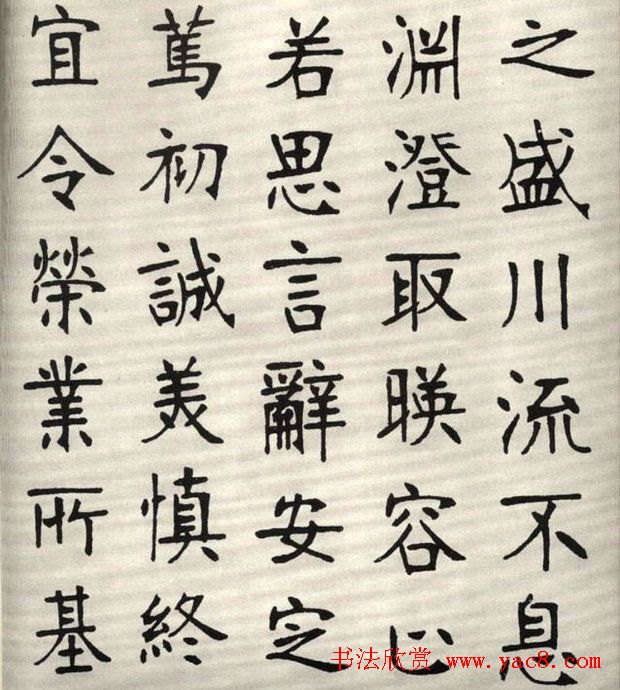 之盛川流不息
淵澄取暎容止
若思言辭安定
篤初誠美慎終
宜令榮業所基
书法欣赏 www.yac8.com